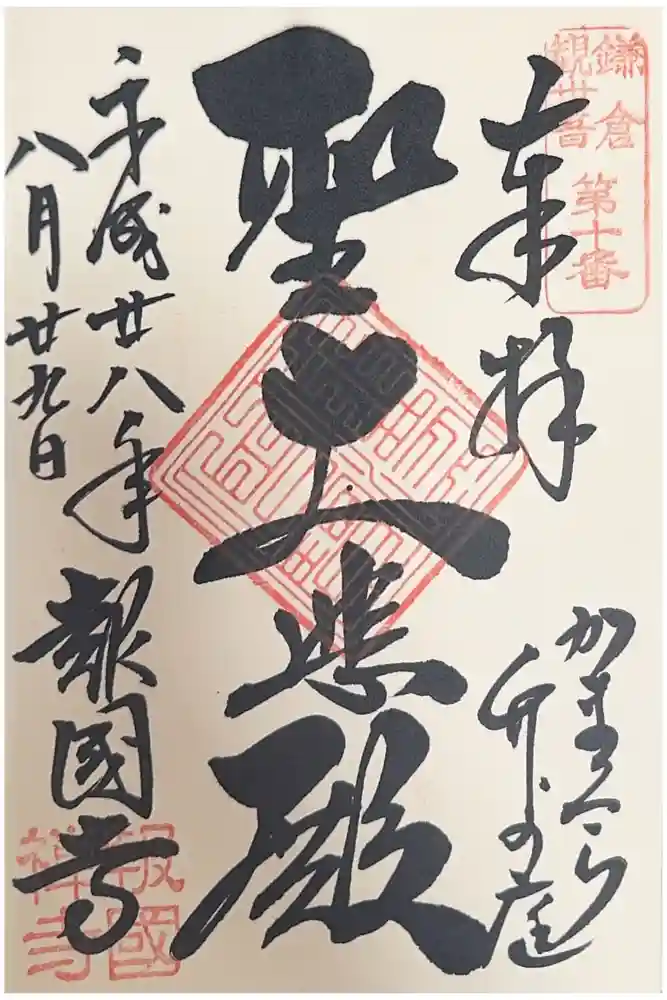 鎌倉
観世音
第十番
奉拝
かまくら
竹の庭
聖大悲殿
平成廿八年
八月廿九日
報国寺
報國
禅寺